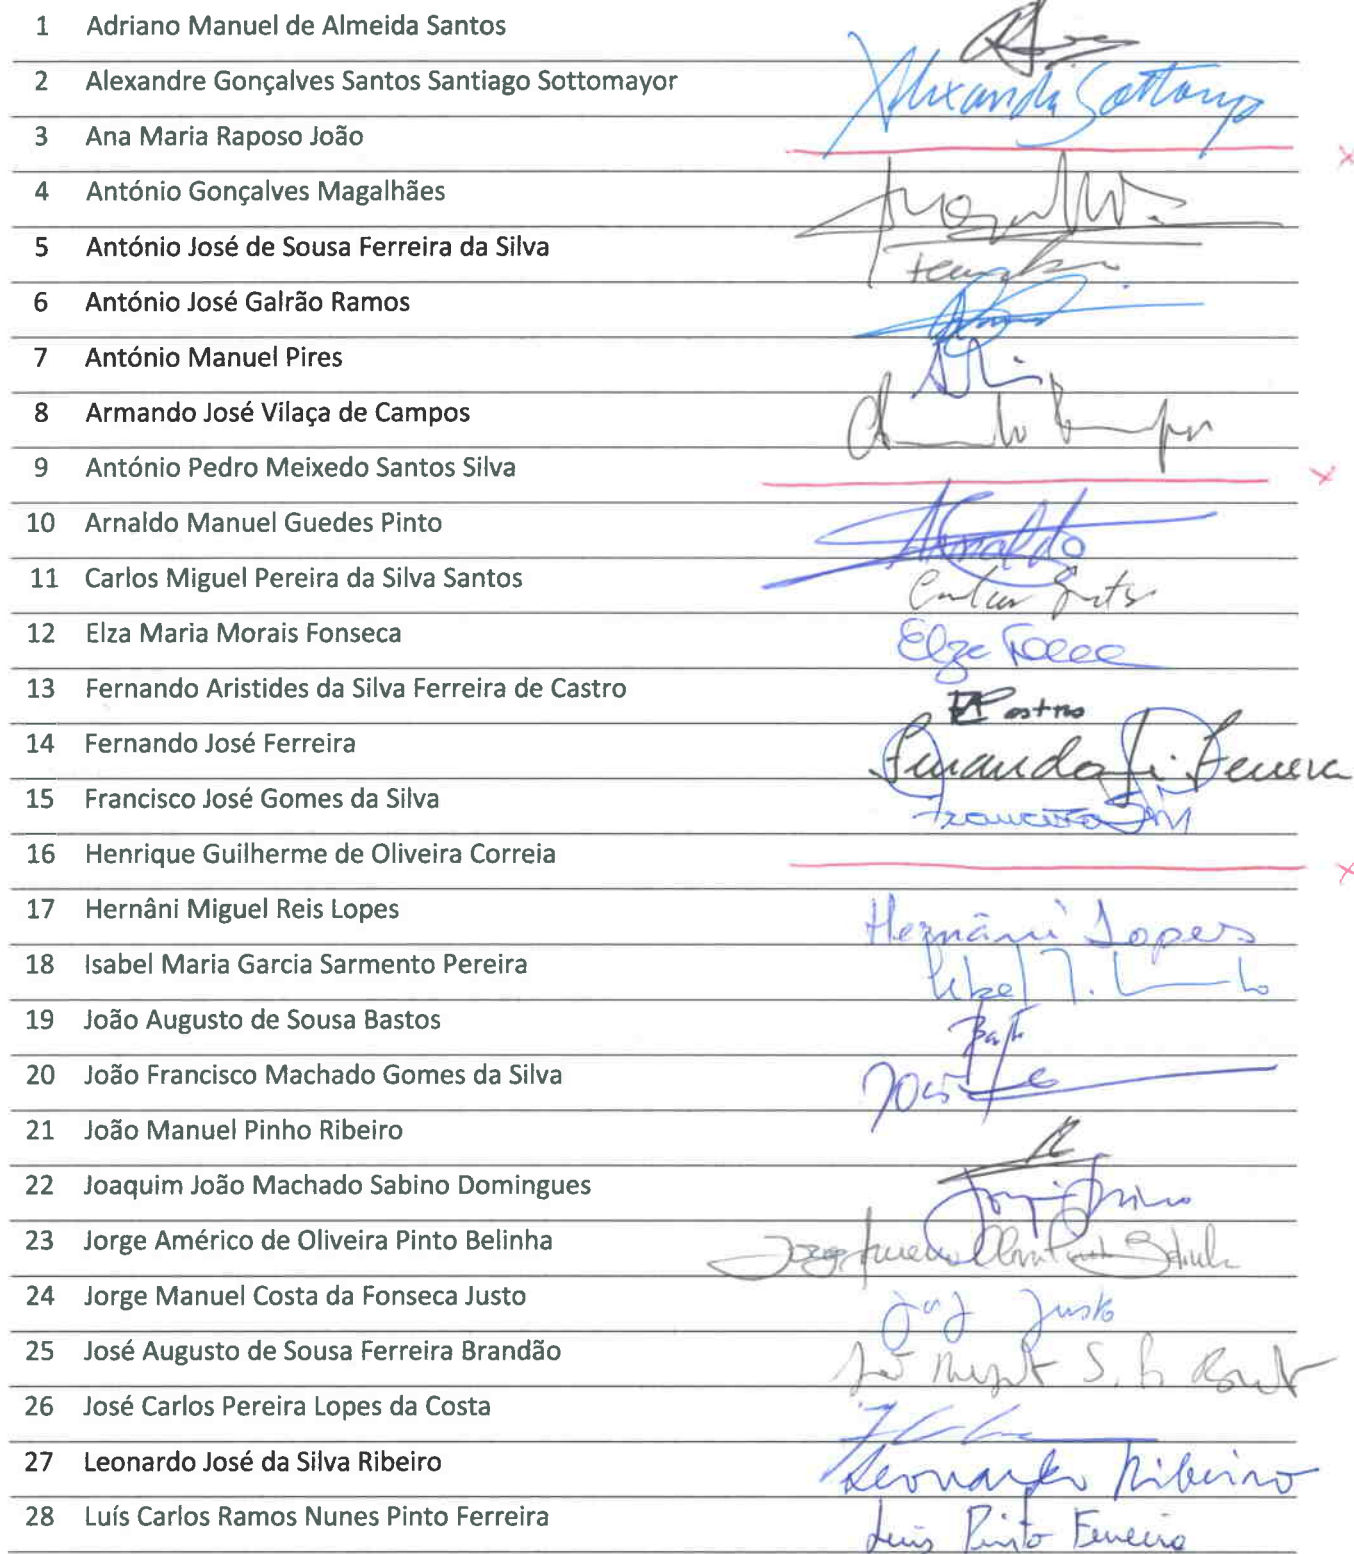 1 Adriano Manuel de Almeida Santos
2 Alexandre Gonçalves Santos Santiago Sottomayor Alexandre Sottomayor
3 Ana Maria Raposo João x
4 António Gonçalves Magalhães
5 António José de Sousa Ferreira da Silva
6 António José Galrão Ramos
7 António Manuel Pires
8 Armando José Vilaça de Campos
9 António Pedro Meixedo Santos Silva x
10 Arnaldo Manuel Guedes Pinto Arnaldo
11 Carlos Miguel Pereira da Silva Santos Carlos Santos
12 Elza Maria Morais Fonseca Elza
13 Fernando Aristides da Silva Ferreira de Castro Castro
14 Fernando José Ferreira Fernando Ferreira
15 Francisco José Gomes da Silva Francisco
16 Henrique Guilherme de Oliveira Correia x
17 Hernâni Miguel Reis Lopes Hernâni Lopes
18 Isabel Maria Garcia Sarmento Pereira Isabel
19 João Augusto de Sousa Bastos
20 João Francisco Machado Gomes da Silva João
21 João Manuel Pinho Ribeiro
22 Joaquim João Machado Sabino Domingues
23 Jorge Américo de Oliveira Pinto Belinha Jorge
24 Jorge Manuel Costa da Fonseca Justo Justo
25 José Augusto de Sousa Ferreira Brandão
26 José Carlos Pereira Lopes da Costa
27 Leonardo José da Silva Ribeiro Leonardo Ribeiro
28 Luís Carlos Ramos Nunes Pinto Ferreira Luís Pinto Ferreira